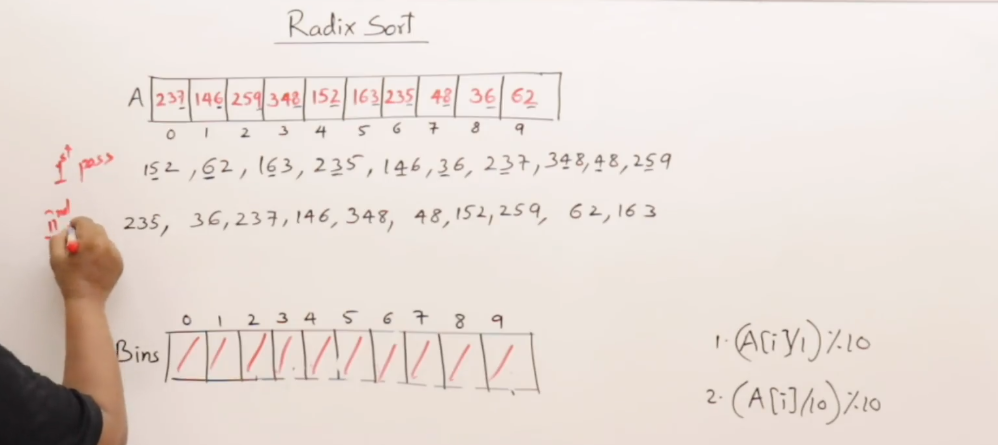 Radix Sort
A 237 146 259 348 152 163 235 48 36 62
0 1 2 3 4 5 6 7 8 9
Ist pass 152, 62, 163, 235, 146, 36, 237, 348, 48, 259
IInd 235, 36, 237, 146, 348, 48, 152, 259, 62, 163
0 1 2 3 4 5 6 7 8 9
Bins / / / / / / / / / /
1. (A[i]/1) % 10
2. (A[i]/10) % 10